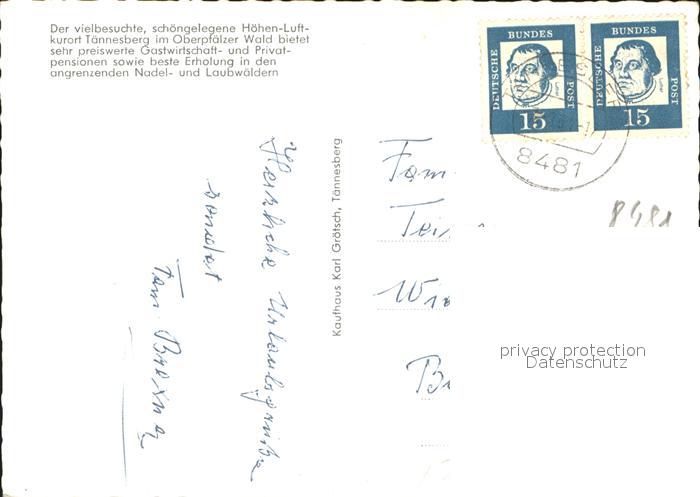 Der vielbesuchte, schöngelegene Höhen-Luft-
kurort Tännesberg im Oberpfälzer Wald bietet
sehr preiswerte Gastwirtschaft- und Privat-
pensionen sowie beste Erholung in den
angrenzenden Nadel- und Laubwäldern
DEUTSCHE BUNDES POST
15
DEUTSCHE BUNDES POST
15
8481
8481
Herzliche Urlaubsgrüße
sendet
Fam.
Kaufhaus Karl Grötsch, Tännesberg
Fam.
privacy protection
Datenschutz